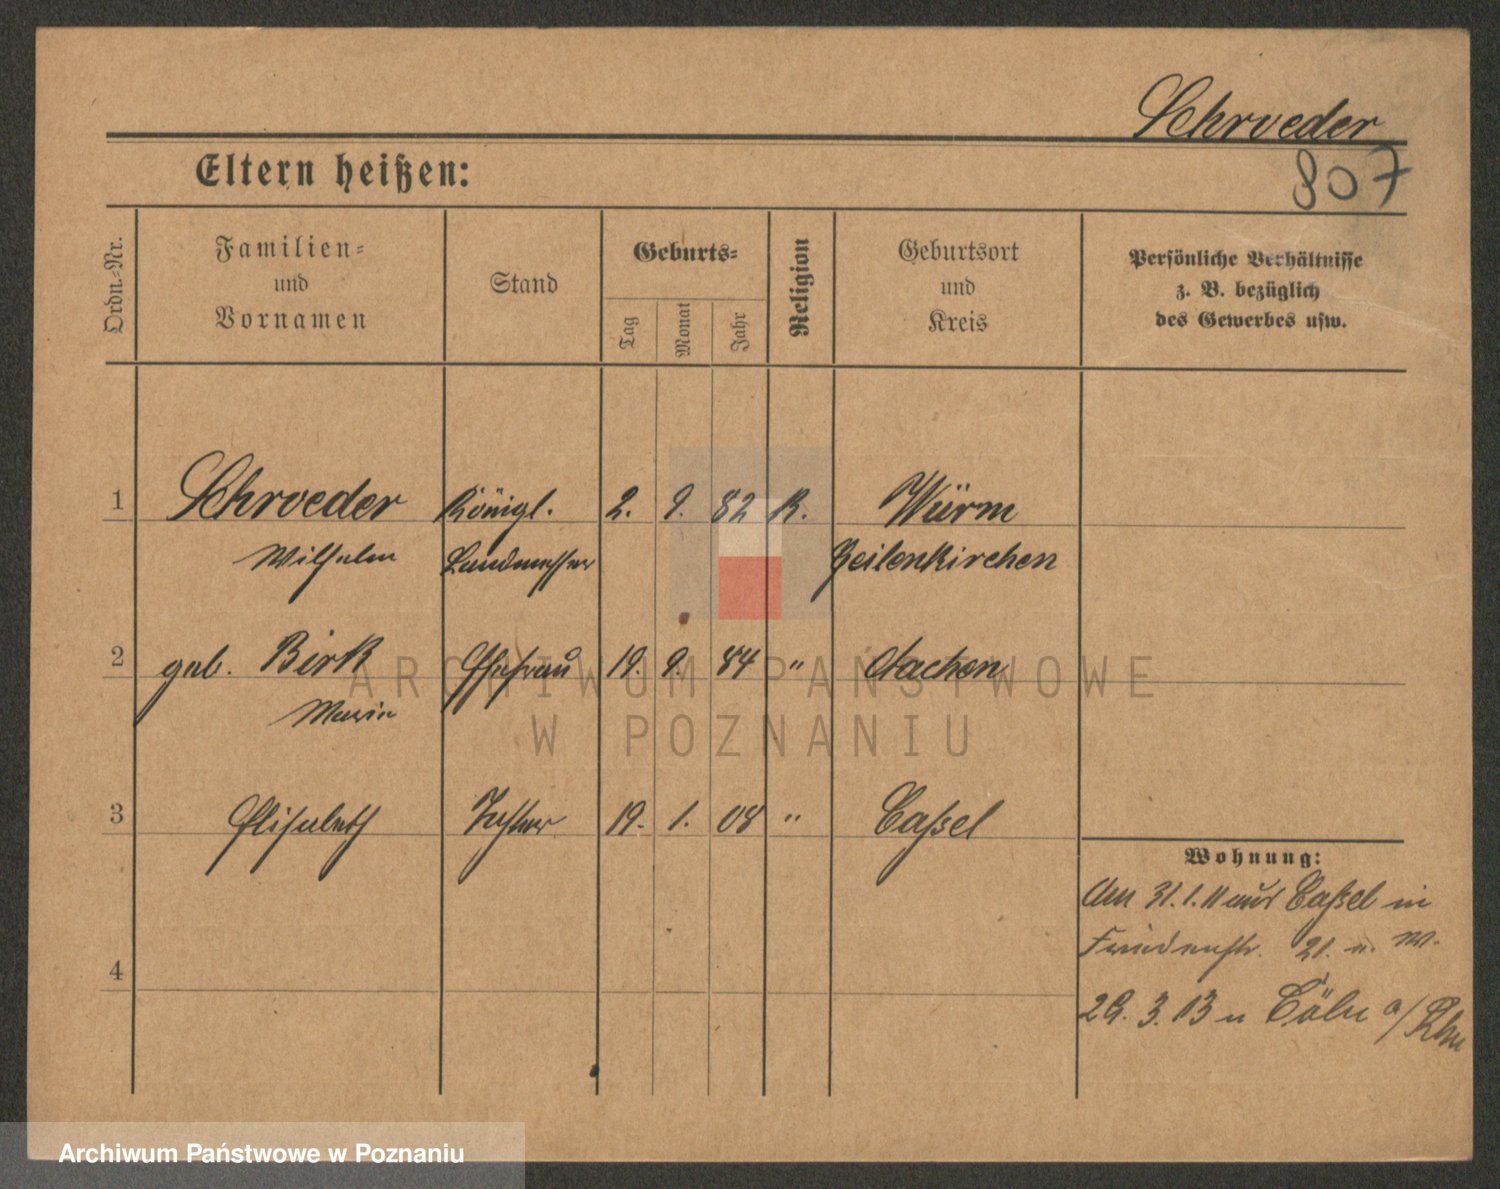 Schroeder
807
Eltern heißen:
Ordn.-Nr.
Familien-
und
Vornamen
Stand
Geburts-
Tag
Monat
Jahr
Religion
Geburtsort
und
Kreis
Persönliche Verhältnisse
z. B. bezüglich
des Gewerbes usw.
1 Schroeder Königl. 2. 9. 82 K. Würm
Wilhelm Landmesser Geilenkirchen
2 geb. Birk Ehefrau 19. 9. 84 " Aachen
Maria
3 Elisabeth Tochter 19. 1. 08 " Cassel
4
Wohnung:
Am 31.1.11 aus Cassel in
Friedenstr. 21. n. W.
29. 3. 13 n Cöln a/Rhn
ARCHIWUM PAŃSTWOWE
W POZNANIU
Archiwum Państwowe w Poznaniu